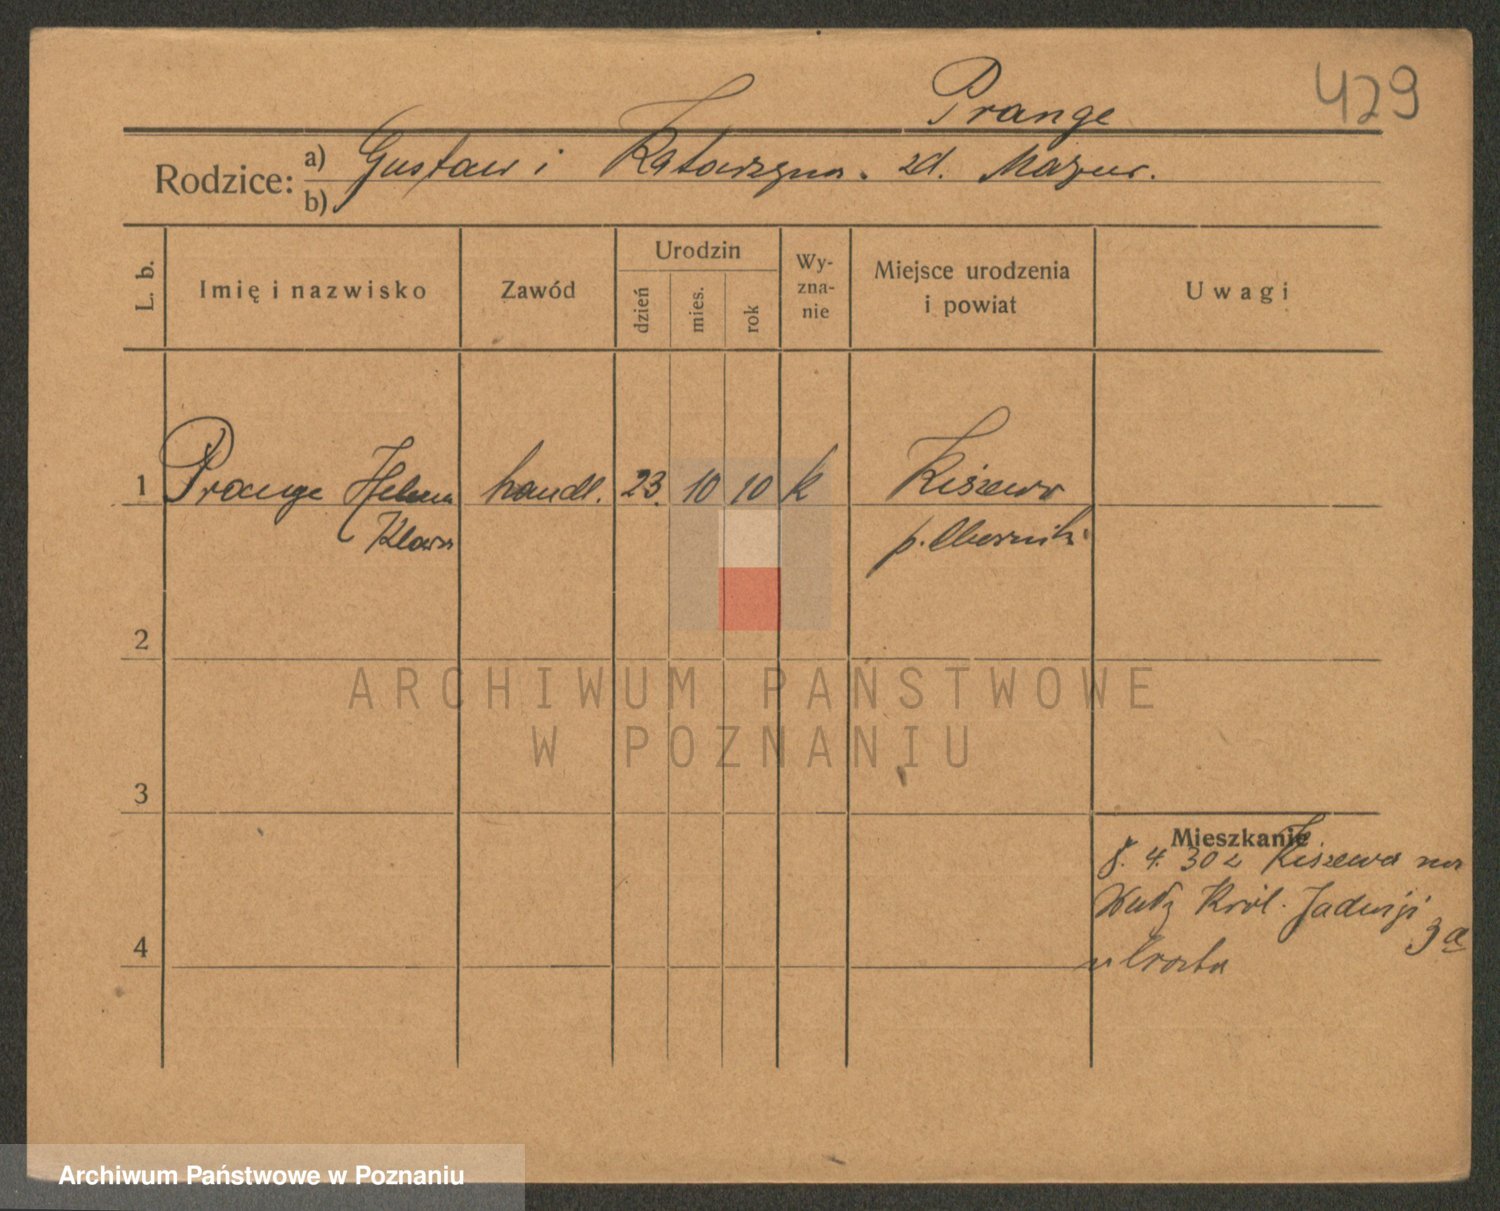 429
Prange
Rodzice: a) Gustaw i Katarzyna zd. Mazur.
b)
L. b.
Imię i nazwisko
Zawód
Urodzin
dzień
mies.
rok
Wy-
zna-
nie
Miejsce urodzenia
i powiat
Uwagi
1 Prange Helena handl. 23. 10 10 k Kiszewo
Klara p. Oborniki
2
ARCHIWUM PAŃSTWOWE
W POZNANIU
3
Mieszkanie
8. 4. 30 z Kiszewa na
Wały Król. Jadwigi
3a
4
Archiwum Państwowe w Poznaniu